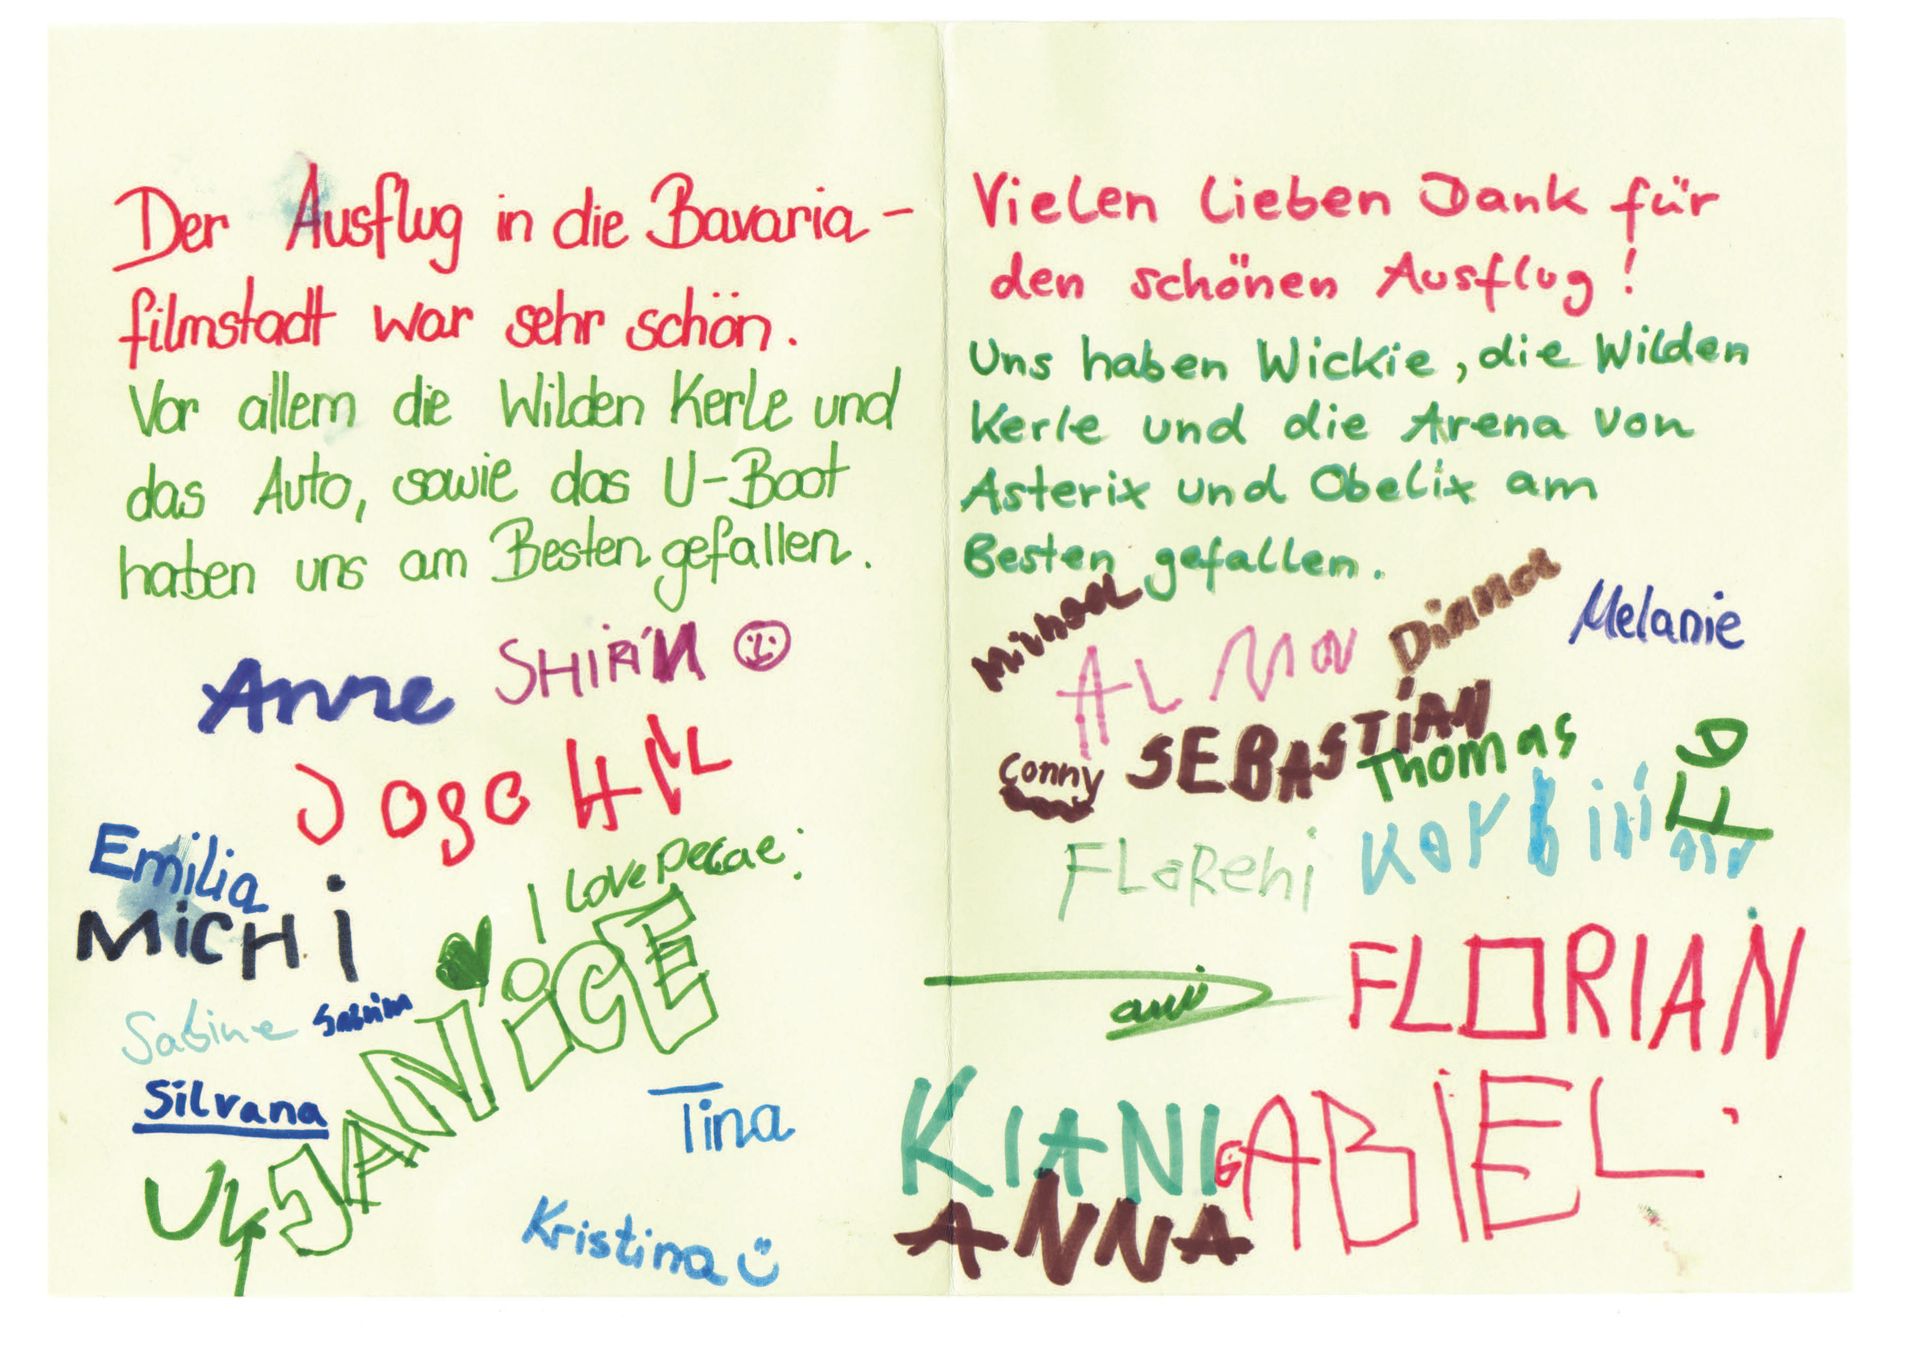 Der Ausflug in die Bavaria-
filmstadt war sehr schön.
Vor allem die Wilden Kerle und
das Auto, sowie das U-Boot
haben uns am Besten gefallen.
Anne SHIRIN
Emilia
I Love
MiCHI
Sabine
JANiCE
Silvana
Tina
Kristina
Vielen lieben Dank für
den schönen Ausflug!
Uns haben Wickie, die Wilden
Kerle und die Arena von
Asterix und Obelix am
Besten gefallen.
Diana
Melanie
SEBASTiAN
Conny
Thomas
FLORIAN
KIANI
GABIEL
ANNA